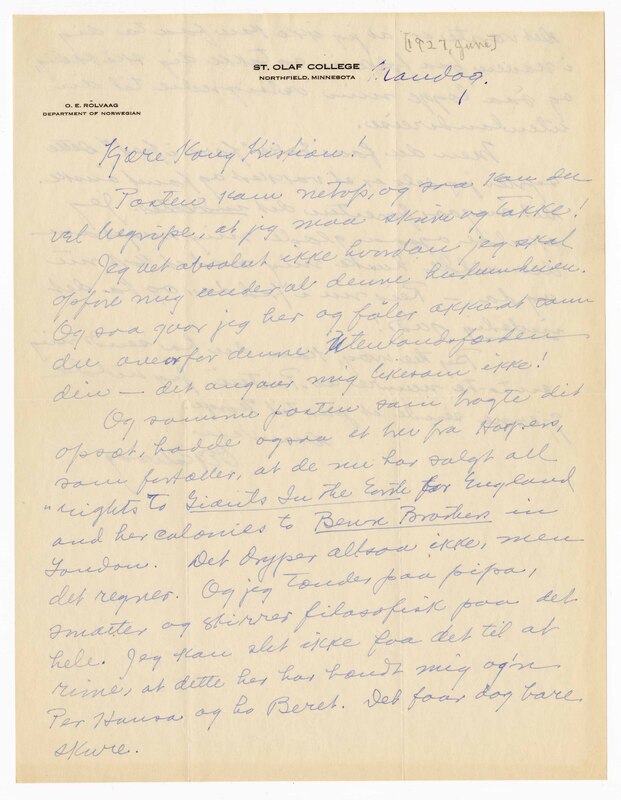 [1927, June]
ST. OLAF COLLEGE
NORTHFIELD, MINNESOTA
Mandag.
O. E. RÖLVAAG
DEPARTMENT OF NORWEGIAN
Kjære Kong Kristian!
Posten kom netop, og saa kan du
vel begripe, at jeg maa skrive og takke!
Jeg vet absolut ikke hvordan jeg skal
opføre mig under al denne
Og saa gaar jeg her og føler akkurat som
du overfor denne Utenlandsfærden
din — det angaar mig likesom ikke!
Og samme posten som bragte dit
opsæt, hadde ogsaa et brev fra Harpers,
som fortæller, at de nu har solgt all
"rights to Giants In the Earth for England
and her colonies to Benn Brothers in
London. Det dryper altsaa ikke, men
det regner. Og jeg tænder paa pipa,
smatter og stirrer filosofisk paa det
hele. Jeg kan slet ikke faa det til at
rime, at dette her har hændt mig og'n
Per Hansa og ho Beret. Det faar dog bare
skure.